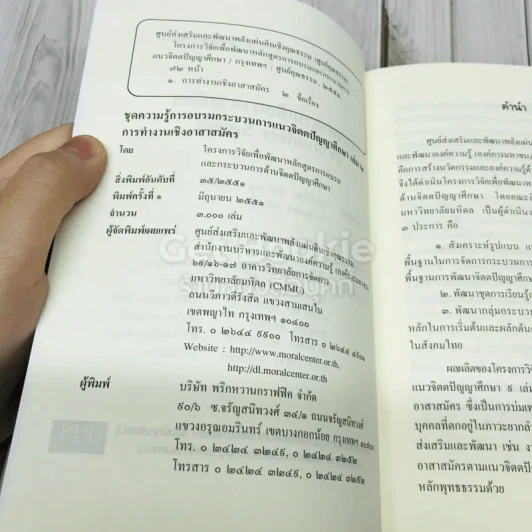 ศูนย์ส่งเสริมและพัฒนาพลังแผ่นดินเชิงคุณธรรม (ศูนย์คุณธรรม)
โครงการวิจัยเพื่อพัฒนาหลักสูตรการอบรมและกระบวนการ
แนวจิตตปัญญาศึกษา / กรุงเทพฯ : ศูนย์คุณธรรม, ๒๕๕๑
๗๒ หน้า
๑. การทำงานเชิงอาสาสมัคร ๒. ชื่อเรื่อง
ชุดความรู้การอบรมกระบวนการแนวจิตตปัญญาศึกษา เล่ม ๒
การทำงานเชิงอาสาสมัคร
โดย โครงการวิจัยเพื่อพัฒนาหลักสูตรการอบรม
และกระบวนการด้านจิตตปัญญาศึกษา
สิ่งพิมพ์อันดับที่ ๓๕/๒๕๕๑
พิมพ์ครั้งที่ ๑ มิถุนายน ๒๕๕๑
จำนวน ๓,๐๐๐ เล่ม
ผู้จัดพิมพ์เผยแพร่ ศูนย์ส่งเสริมและพัฒนาพลังแผ่นดินเชิงคุณธรรม
สำนักงานบริหารและพัฒนาองค์ความรู้ (องค์การมหาชน)
๖๙/๑๖-๑๗ อาคารวิทยาลัยการจัดการ
มหาวิทยาลัยมหิดล (CMMU)
ถนนวิภาวดีรังสิต แขวงสามเสนใน
เขตพญาไท กรุงเทพฯ ๑๐๔๐๐
โทร. ๐ ๒๖๔๔ ๙๙๐๐ โทรสาร ๐ ๒๖๔๔
Website : http://www.moralcenter.or.th,
http://dl.moralcenter.or.th
ผู้พิมพ์ บริษัท พริกหวานกราฟฟิค จำกัด
๙๐/๖ ซ.จรัญสนิทวงศ์ ๓๔/๑ ถนนจรัญสนิทวงศ์
แขวงอรุณอมรินทร์ เขตบางกอกน้อย กรุงเทพฯ ๑๐๗๐๐
โทร. ๐ ๒๔๒๔ ๓๒๔๙, ๐ ๒๔๒๔ ๓๒๕๒
โทรสาร ๐ ๒๔๒๔ ๓๒๔๙, ๐ ๒๔๒๔ ๓๒๕๒
คำนำ
ศูนย์ส่งเสริมและพัฒนาพลังแผ่นดิ
และพัฒนาองค์ความรู้ (องค์การมหาชน
คือการสร้างนวัตกรรมและองค์ความรู้ด้
จึงได้ดำเนินโครงการวิจัยเพื่อพัฒนาหลั
จิตตปัญญาศึกษา โดยคณะ
มหาวิทยาลัยมหิดล เป็นผู้ดำเนิน
๓ ประการ คือ
๑. สังเคราะห์รูปแบบ แ
พื้นฐานในการจัดการกระบวนกา
พื้นฐานการพัฒนาจิตตปัญญาศึก
๒. พัฒนาชุดการเรียนรู้
๓. พัฒนากลุ่มกระบวน
หลักในการเริ่มต้นและผลักดัน
ในสังคมไทย
ผลผลิตของโครงการวิจั
แนวจิตตปัญญาศึกษา ๙ เล่ม
อาสาสมัคร ซึ่งเป็นการบ่มเพ
บุคคลที่ตกอยู่ในภาวะยากลำ
ส่งเสริมและพัฒนา เช่น ง
อาสาสมัครตามแนวจิตตปัญ
หลักพุทธธรรมด้วย